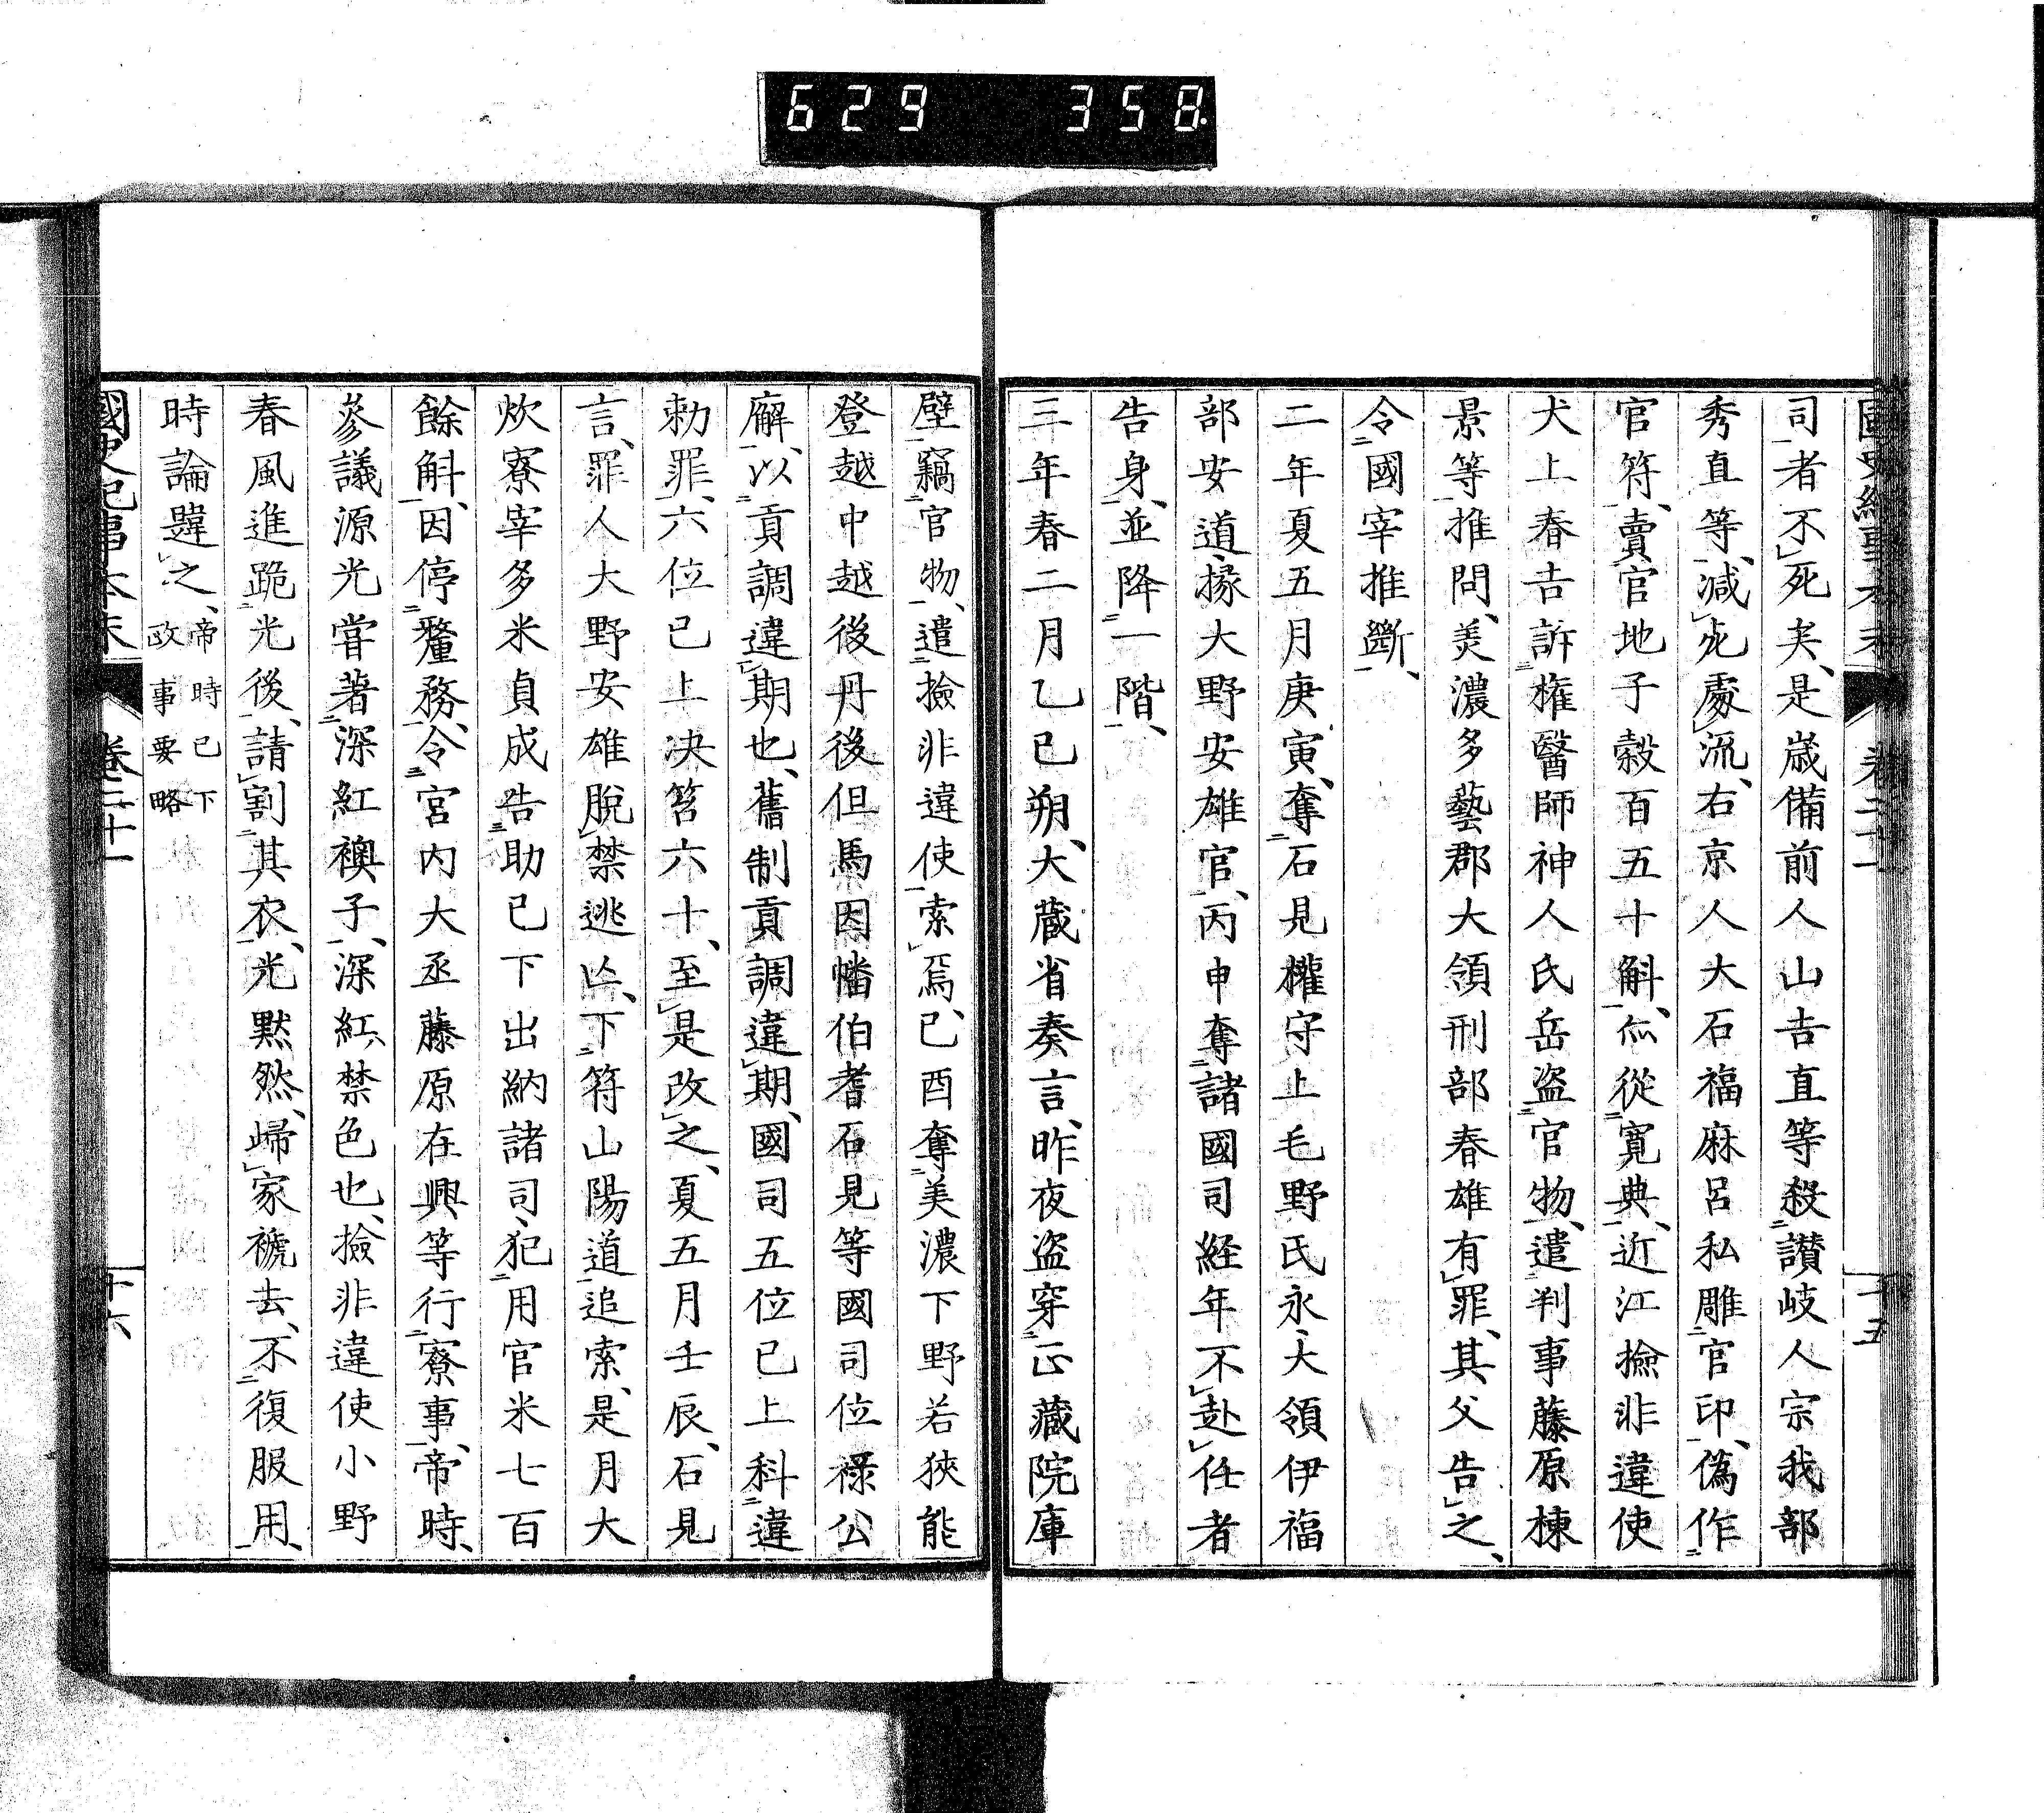 629 358
國史紀事本末 卷二十一 十五
司者不死矣是歳備前人山吉直等殺讃岐人宗我部
秀直等減死處流右京人大石福麻呂私雕官印偽作
官符賣官地子穀百五十斛亦從寛典近江撿非違使
犬上春吉訴権醫師神人氏岳盗官物遣判事藤原棟
景等推問美濃多藝郡大領刑部春雄有罪其父告之
令國宰推斷
二年夏五月庚寅奪石見權守上毛野氏永大領伊福
部安道掾大野安雄官丙申奪諸國司経年不赴任者
告身並降一階
三年春二月乙巳朔大藏省奏言昨夜盗穿正藏院庫
壁竊官物遣撿非違使索焉己酉奪美濃下野若狹能
登越中越後丹後但馬因幡伯耆石見等國司位祿公
廨以貢調違期也舊制貢調違期國司五位已上科違
勅罪六位已上决笞六十至是改之夏五月壬辰石見
言罪人大野安雄脫禁逃亾下符山陽道追索是月大
炊寮宰多米貞成告助已下出納諸司犯用官米七百
餘斛因停釐務令宮内大丞藤原在興等行寮事帝時
參議源光甞著深紅襖子深紅禁色也撿非違使小野
春風進跪光後請割其衣光黙然歸家褫去不復服用
時論韙之帝時已下政事要略
國史紀事本末 卷二十一 十六